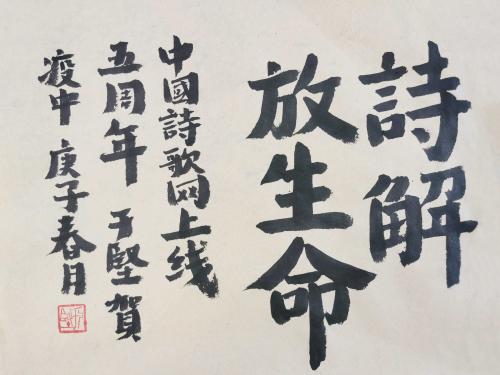 詩解
放生命
中國詩歌网上线
五周年 于堅賀
疫中 庚子春月